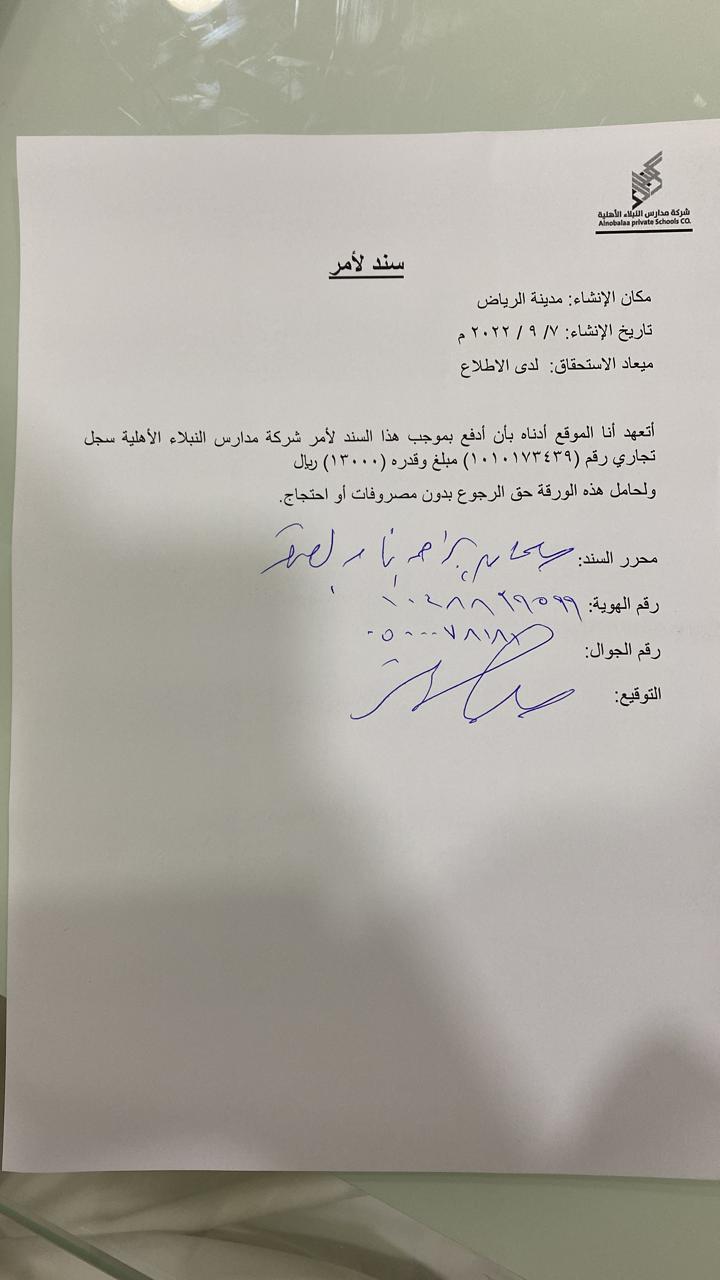 شركة مدارس النبلاء الأهلية
Alnobalaa private Schools CO.
سند لأمر
مكان الإنشاء: مدينة الرياض
تاريخ الإنشاء: ٧/ ٩ / ٢٠٢٢ م
ميعاد الاستحقاق: لدى الاطلاع
أتعهد أنا الموقع أدناه بأن أدفع بموجب هذا السند لأمر شركة مدارس النبلاء الأهلية سجل
تجاري رقم (١٠١٠١٧٣٤٣٩) مبلغ وقدره (١٣٠٠٠) ريال
ولحامل هذه الورقة حق الرجوع بدون مصروفات أو احتجاج.
محرر السند:
رقم الهوية:
رقم الجوال:
التوقيع: